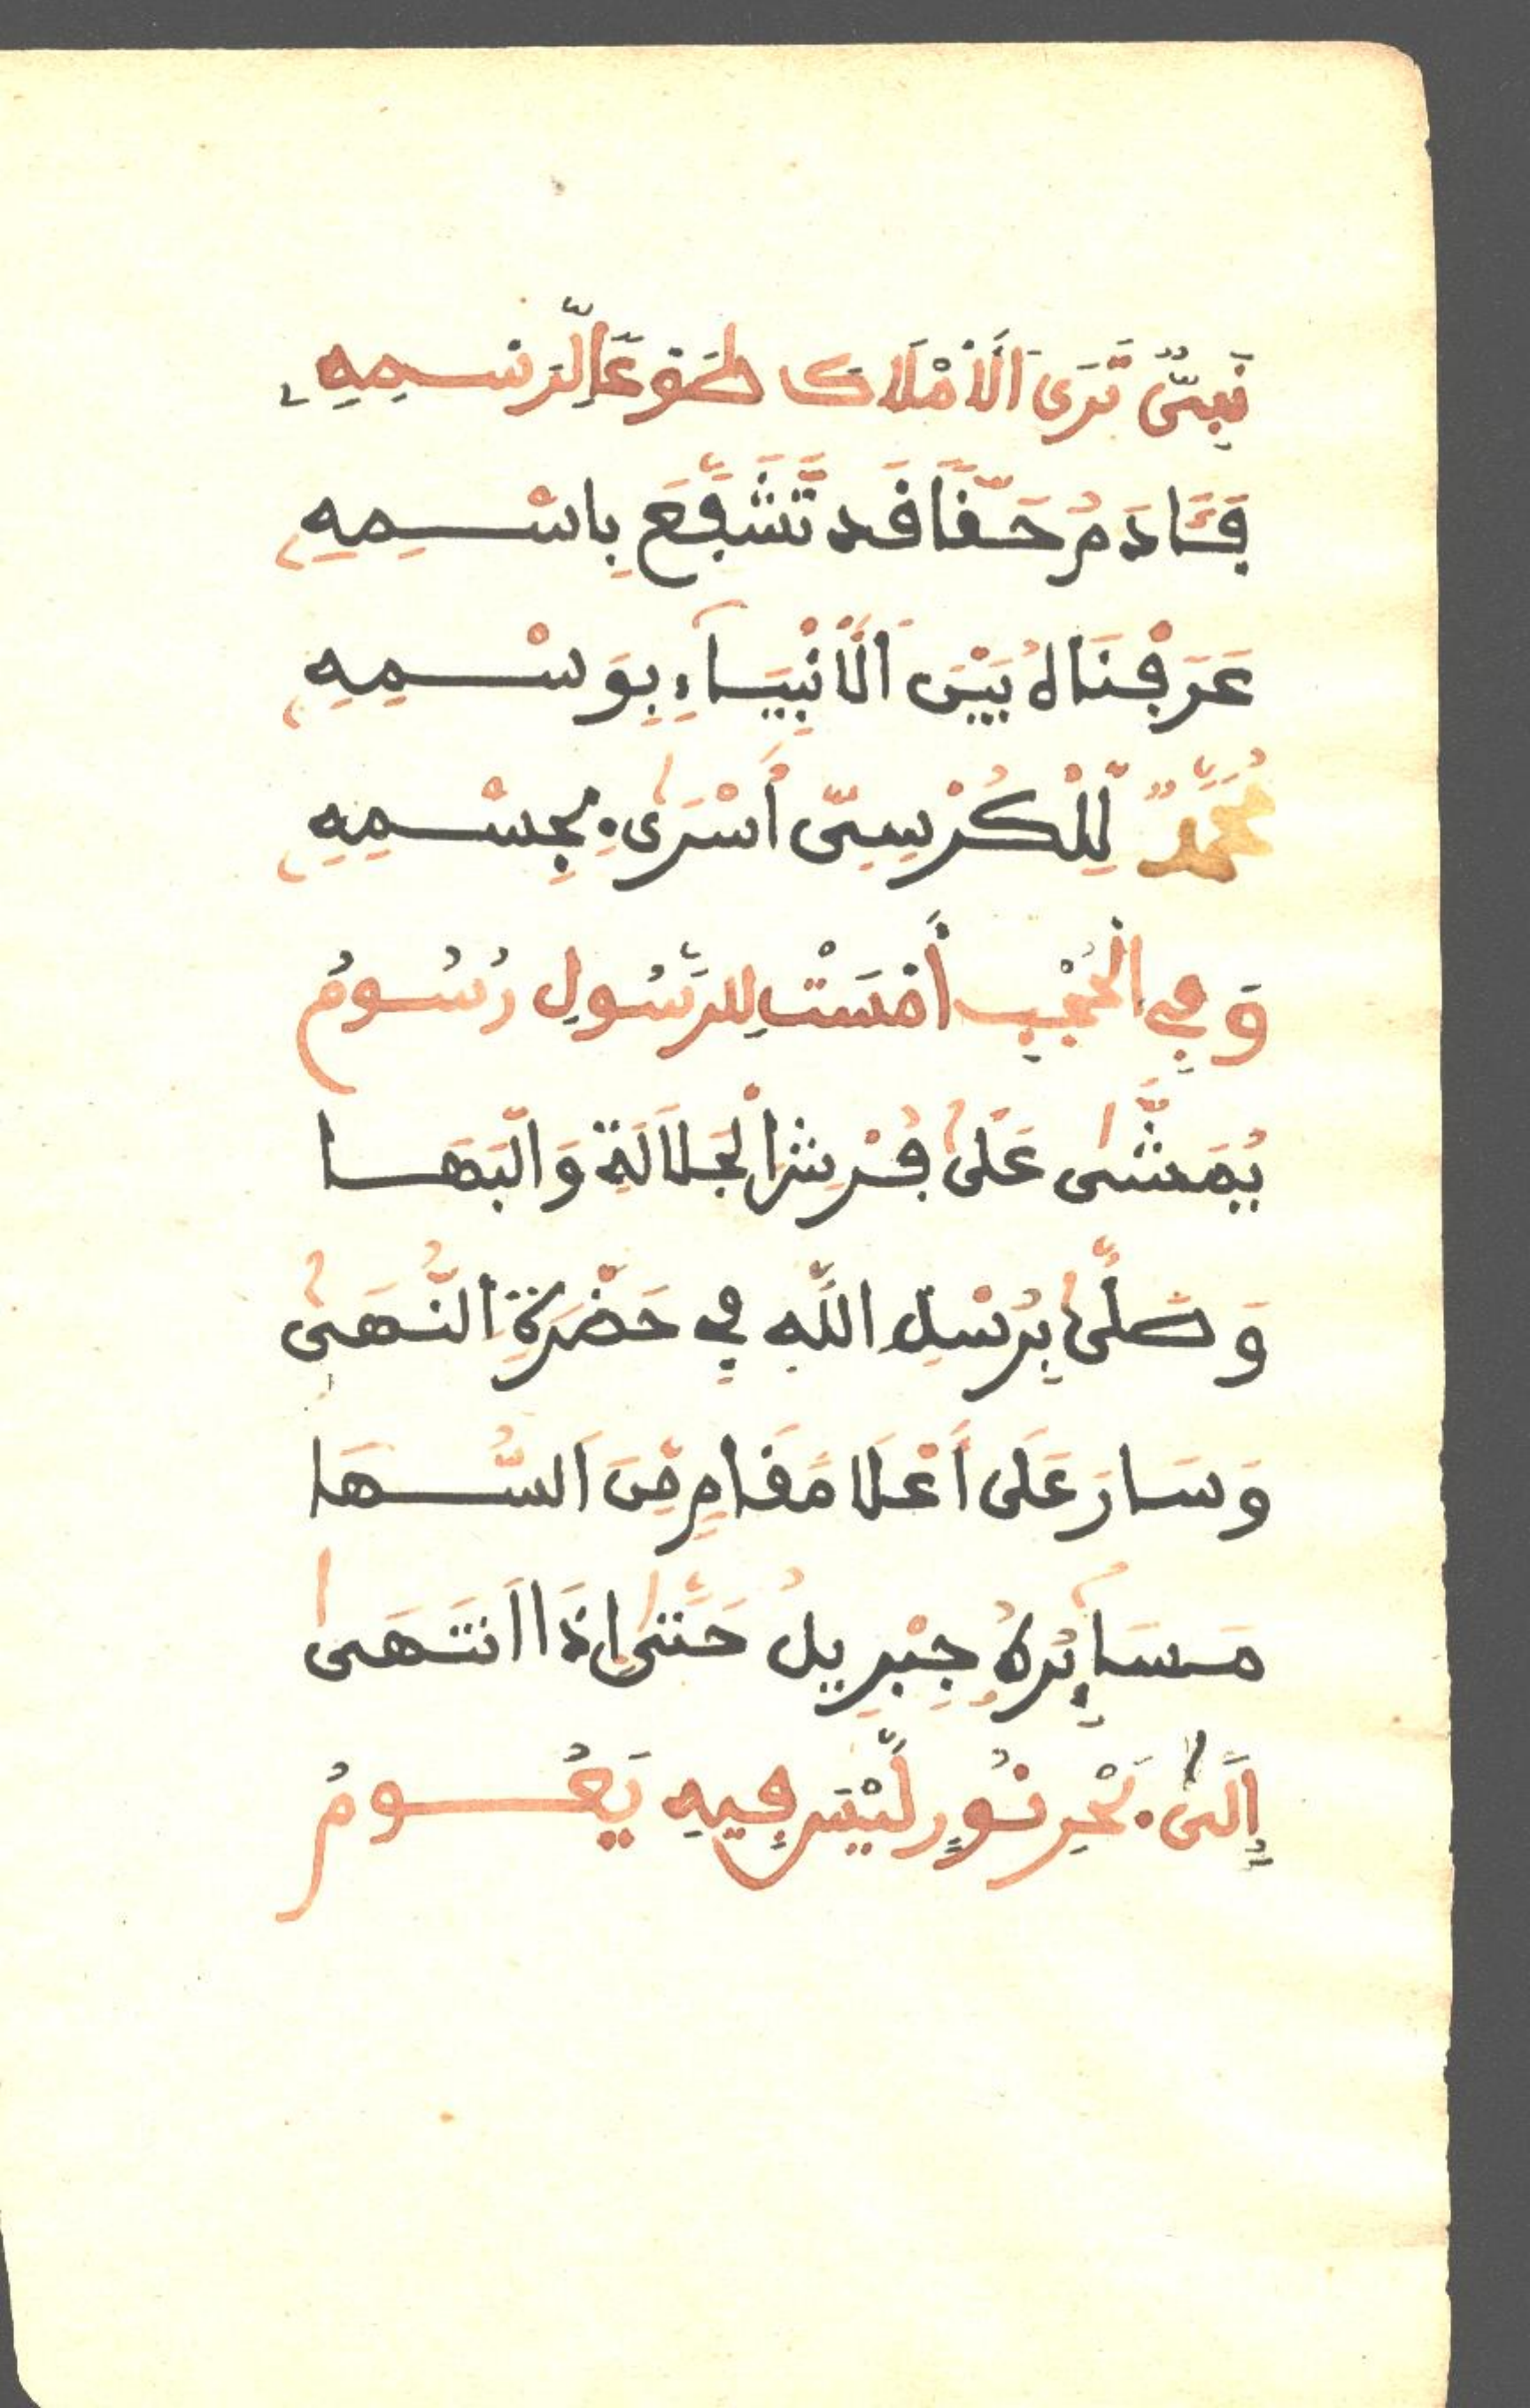 نَبِيٌّ تَرَى الَامْلَاكَ طَوْعًا لِّرَسْمِهِ
فَـَٔادَمُ حَقًّا قَد تَّشَفَّعَ بِاسْمِهِ
عَرَفْنَاهُ بَيْنَ الَانْبِيَاءِ بِوَسْمِهِ
مُحَمَّدٌ لِّلْكُرْسِيِّ أَسْرَى بِجِسْمِهِ
وَفِي الْحُجْبِ أَمْسَتْ لِلرَّسُولِ رُسُومُ
يُمَشَّى عَلَى فُرْشِ الْجَلَالَةِ وَالْبَهَا
وَصَلَّى بِرُسْلِ اللَّهِ فِي حَضْرَةِ النُّهَى
وَسَارَ عَلَى أَعْلَا مَقَامٍ مِّنَ السُّهَا
مَسَائِرُهُ جِبْرِيلُ حَتَّى إِذَا اَنتَهَى
إِلَى بَحْرِ نُورٍ لَّيْسَ فِيهِ يَعُومُ